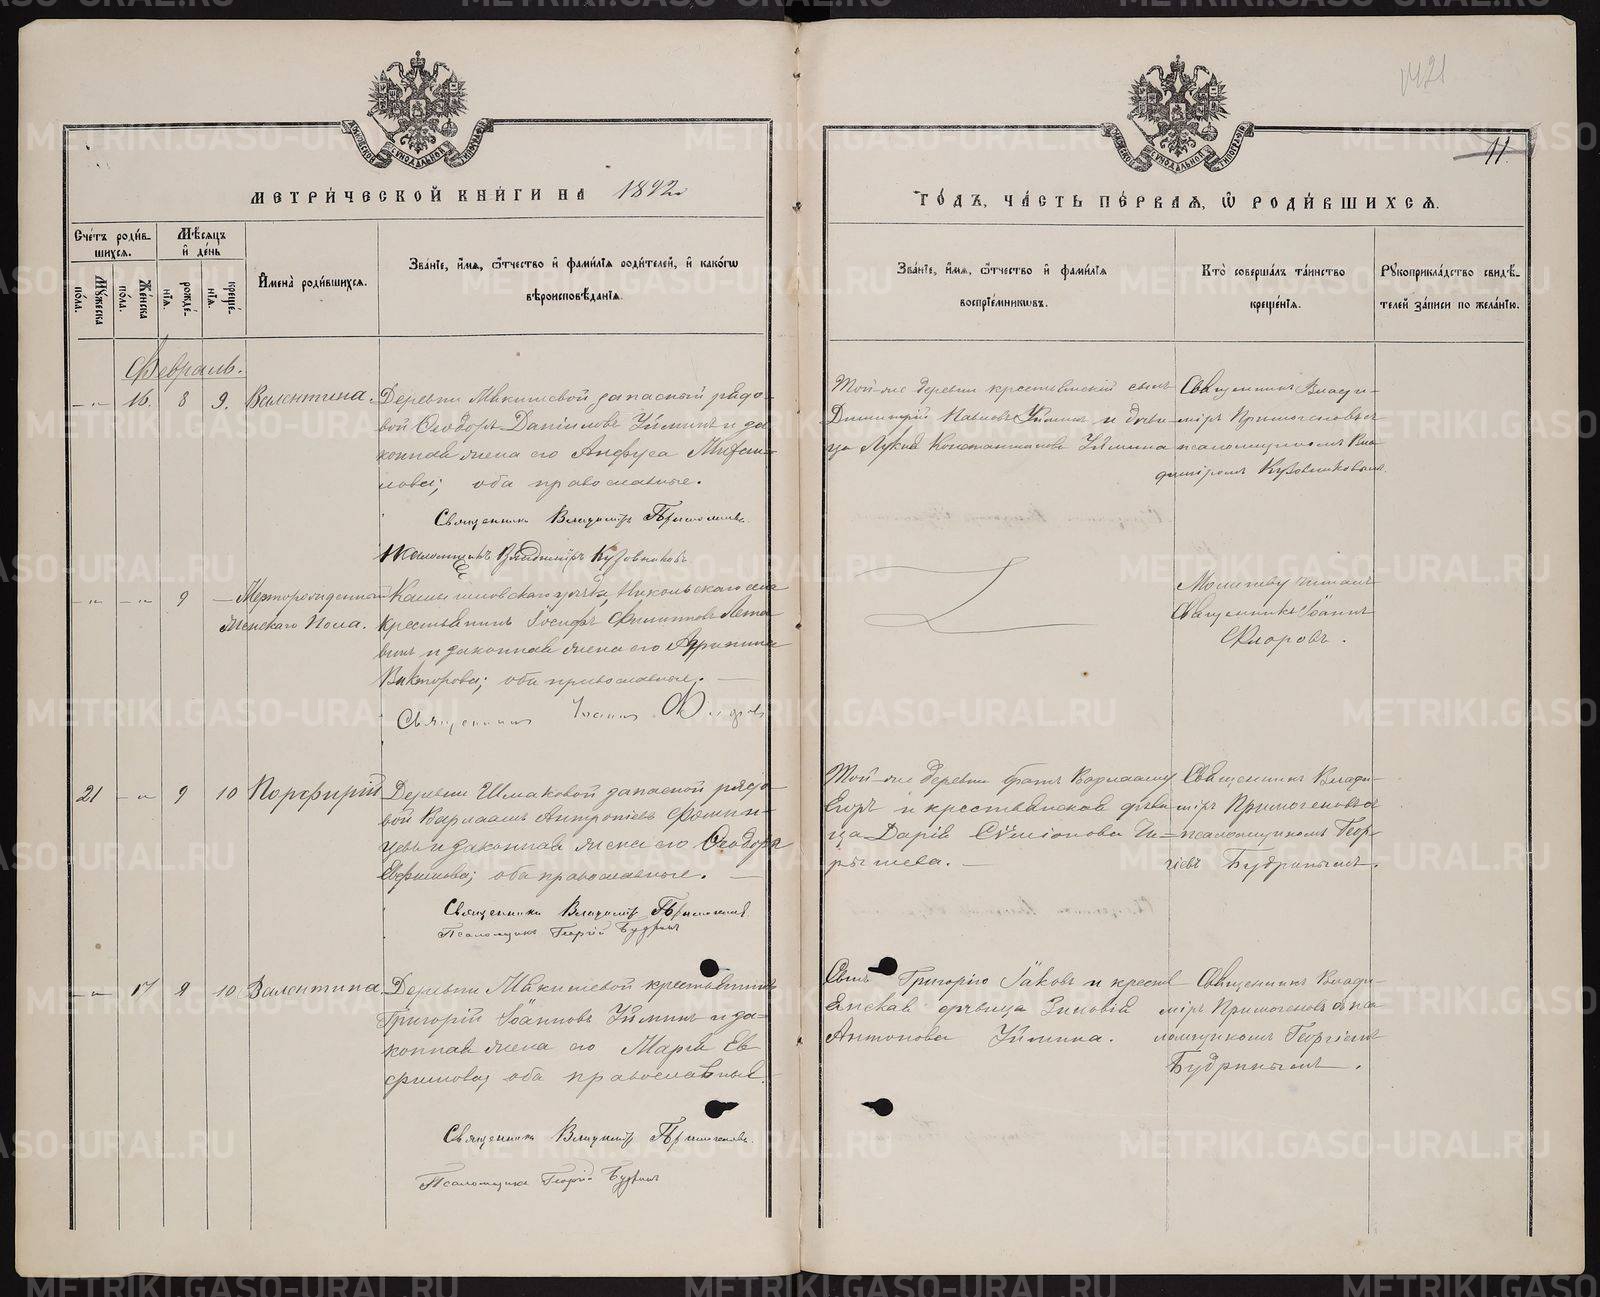 421
11
МЕТРИ́ЧЕСКОЙ КНИ́ГИ НА 1892
ГО́ДЪ, ЧА́СТЬ ПЕ́РВАЯ, Ѡ РОДИ́ВШИХСЯ.
Сче́тъ роди́в-
шихся.
Мѣ́сяцъ
и́ де́нь
Му́жеска по́ла.
Же́нска по́ла.
рожде́-
нїя.
креще́-
нїя.
И́мена̀ роди́вшихся.
Зва́нїе, и́мя, ѻ́тчество и́ фами́лїя роди́телей, и́ како́гѡ
вѣроисповѣ́данїя.
Зва́нїе, и́мя, ѻ́тчество и́ фами́лїя
воспрїе́мниковъ.
Кто̀ соверша́лъ та́инство
креще́нїя.
Рукоприкла́дство свидѣ́-
телей за́писи по жела́нїю.
Февраль.
— „ — 16. 8 9. Валентина.
Деревни Макишевой запасный рядо-
вой Ѳеодоръ Данииловъ Уйминъ и за
конная жена его Анфуса
оба православные.
Священникъ Владимиръ Примогеновъ
Псаломщикъ Владимиръ Кузовниковъ
Той-же деревни крестьянскій сынъ
Димитрій Павловъ Уйминъ и дѣви-
ца Лукія Константинова Уймина
Священникъ Влади-
міръ Примогеновъ съ
псаломщикомъ Вла
диміромъ Кузовниковымъ
— „ — — „ — 9 — Мерторожденная
Женскаго Пола.
Камышловскаго уѣзда, Никольскаго села
крестьянинъ Іосифъ Филипповъ
и законная жена его Агрипина
Викторова; оба православные.
Священникъ Іоаннъ Флоровъ
Молитву читалъ
Священникъ Іоаннъ
Флоровъ.
21 — „ — 9 10 Порфирій
Деревни Шмаковой запасной рядо-
вой Варлаамъ Антоніевъ Фомин-
цевъ и законная жена его Ѳеодора
Евфимова; оба православные.
Священникъ Владимиръ Примогеновъ
Псаломщикъ Георгій Будринъ
Той-же деревни братъ Варлааму
Егоръ и крестьянская дѣви
ца Дарія Сѵмеонова
Священникъ Влади-
міръ Примогеновъ съ
псаломщикомъ Геор-
гіевъ Будринымъ.
— „ — 17 9 10 Валентина.
Деревни Макишевой крестьянинъ
Григорій Іоанновъ Уйминъ и за-
конная жена его Марія Ев
фимова, оба православные.
Священникъ Владимиръ Примогеновъ.
Псаломщикъ Георгій Будринъ
Сынъ Григорію Іаковъ и крестья
янская дѣвица Зиновія
Антонова Уймина.
Священникъ Влади-
міръ Примогеновъ съ пса
ломщикомъ Георгіемъ
Будринымъ.
METRIKI.GASO-URAL.RU